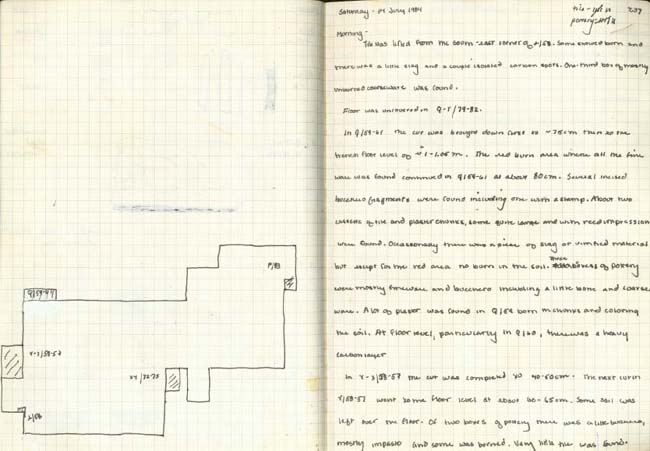 P/83
Q/59-44
r-s/58-57
xx/72-73
2/58
Saturday - 14 July 1984
237
Morning -
Tile was lifted from the south-east corner of 2/58. Some showed burn and
there was a little slag and a couple isolated carbon spots. One-third box of mostly
unburned coarseware was found.
Floor was uncovered in Q-T/79-82.
In Q/59-61 the cut was brought down first to ~75cm then to the
trench floor level of ~1-1.05m. The red burn area where all the fine
ware was found continued in Q/59-61 at about 80cm. Several incised
bucchero fragments were found including one with a stamp. About two
of tile and plaster chunks, some quite large and with reed impression
were found. Occasionally there was a piece of slag or vitrified material
but except for the red area no burn in the soil. boxes of pottery
were mostly fineware and bucchero including a little bone and coarse
ware. A lot of plaster was found in Q/59 both in chunks and coloring
the soil. At floor level, particularly in Q/60, there was a heavy
carbon layer
In r-s/58-57 the cut was completed to 40-50cm. The next cut in
r/58-57 went to the floor level at about 60-65cm. Some soil was
left over the floor. Of two boxes of pottery there was a little bucchero,
mostly impasto and some was burned. Very little tile was found.